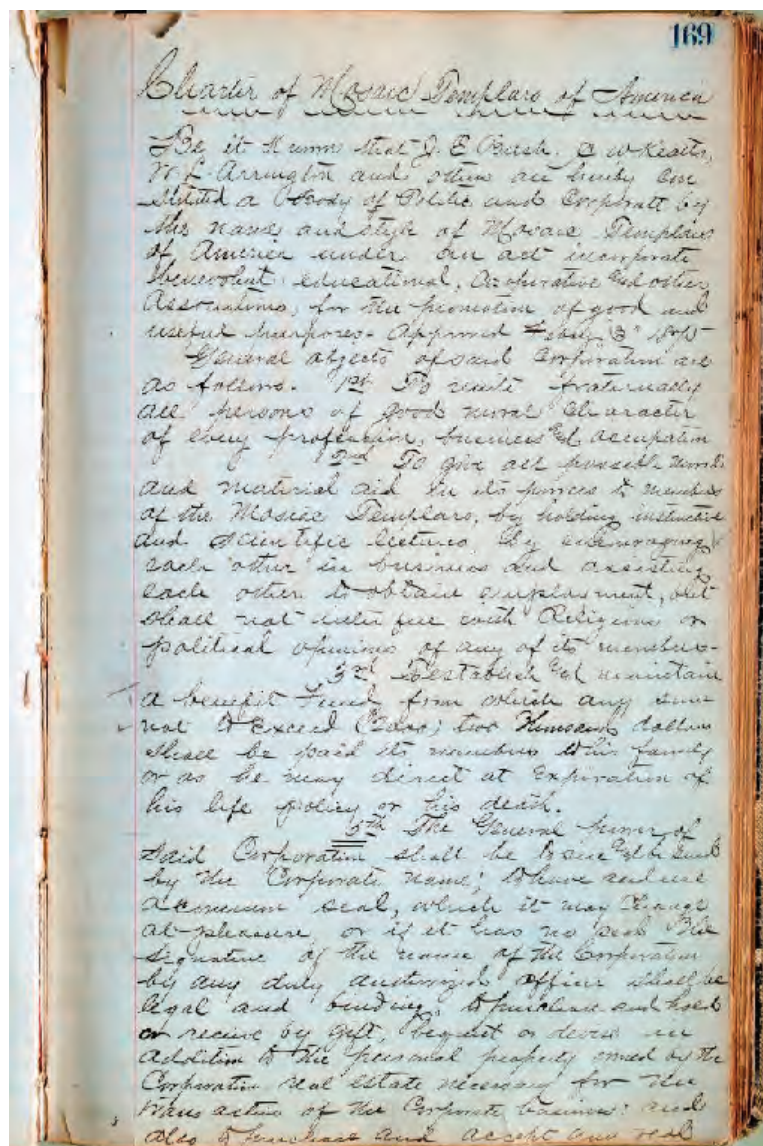 169
Charter of Mosaic Templars of America
Be it Known that J. E. Bush. C W Keatts,
W. L. Arrington and others are hereby con
stituted a Body of Politic and Corporate by
the name and style of Mosaic Templars
of America under an act incorporate
benevolent, educational, and other
Associations, for the promotion of good and
useful purposes. Approved
General objects of said Corporation are
as follows. 1st To unite fraternally
all persons of good moral Character
of every profession, business and occupation
2nd To give all possible moral
and material aid in its power to members
of the Mosaic Templars, by holding instructive
and scientific lectures by encouraging
each other in business and assisting
each other to obtain employment, but
shall not interfere with Religious or
political opinions of any of its members.
3rd To establish and maintain
a benefit Fund from which any sum
not to Exceed two Thousand dollars
shall be paid its members to his family
or as he may direct at Expiration of
his life policy or his death.
5th The General power of
said Corporation shall be to sue and be sued
by the Corporate name; to have and use
a common seal, which it may Change
at pleasure or if it has no seal the
signature of the name of the Corporation
by any duly authorized officer shall be
legal and binding, to purchase and hold
or receive by gift, bequest or devise in
addition to the personal property owned by the
Corporation real estate necessary for the
transaction of the Corporate business: and
also to purchase and accept any real